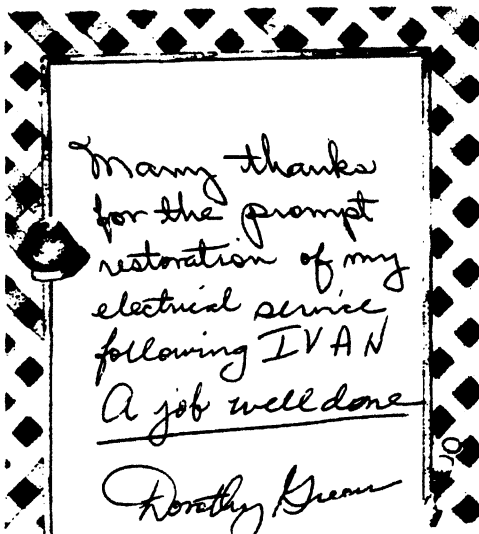 Many thanks
for the prompt
restoration of my
electrical service
following IVAN
A job well done
Dorothy